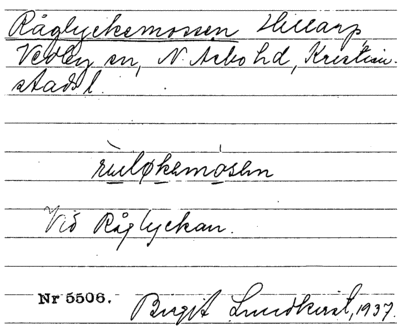 Råglyckemossen Hillarp
Vedby sn, N. Åsbo hd, Kristian-
stads l.
Vid Råglyckan.
Nr 5506. Birgit Lundkvist, 1937.